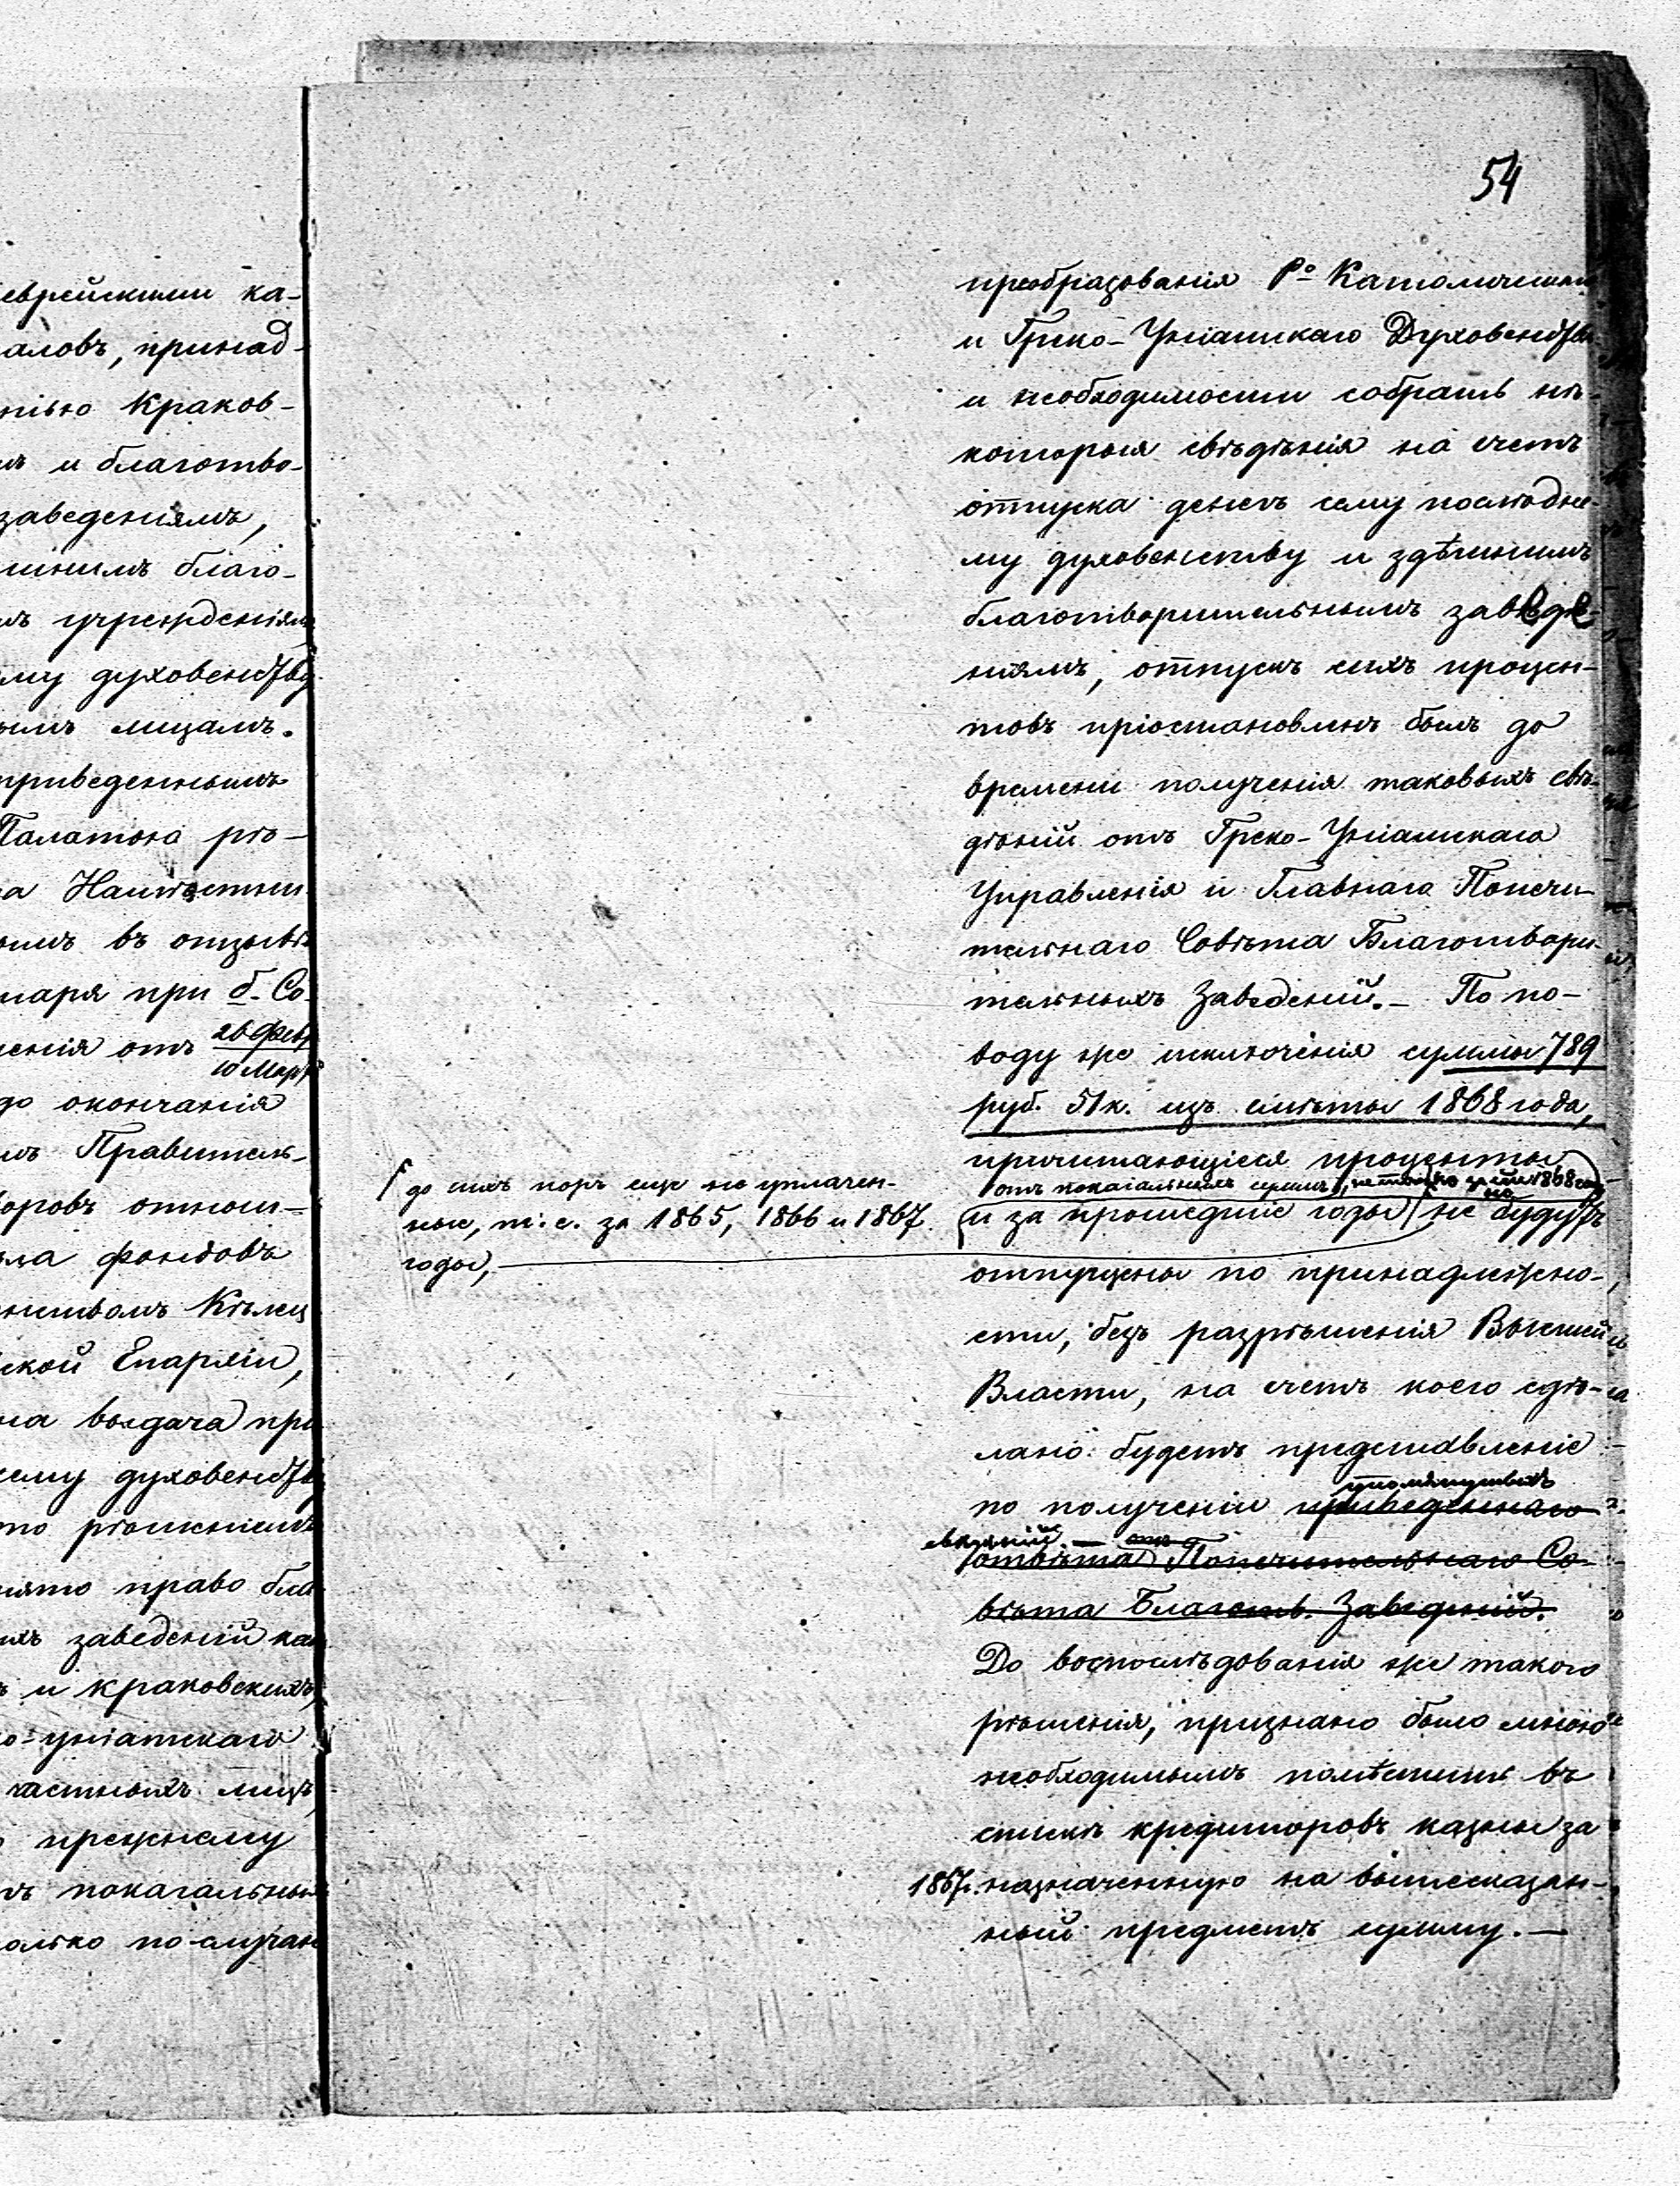 еврейскими ка-
аловъ, принад-
нію Краков-
и благотво-
заведеніямъ,
благо-
учрежденіямъ
му духовенству
лицамъ.
приведеннымъ
Палатою рѣ-
а Намѣстни
въ отзывѣ
наря при б. Со-
ченія отъ 26 Февр
10 Март
до окончанія
Правитель-
оровъ относи-
ла фондовъ
нствомъ Кѣлец
ской Епархіи,
на выдача при
кому духовенству
то рѣшеніемъ
нято право бла
ихъ заведеній ка
ъ и краковскихъ
о-уніатскаго
частныхъ лицъ,
прежнему
покагальны
олько по случаю
54
преобразованія Р⁰ Католическаго
и Греко-Уніатскаго Духовенства
и необходимости собрать нѣ-
которыя свѣдѣнія на счетъ
отпуска денегъ сему послѣдне-
му духовенству и здѣшнимъ
благотворительнымъ заведе-
ніямъ, отпускъ сихъ процен-
товъ пріостановленъ былъ до
времени полученія таковыхъ свѣ-
дѣній отъ Греко-Уніатскаго
Управленія и Главнаго Попечи-
тельнаго Совѣта Благотвори-
тельныхъ Заведеній.— По по-
воду же исключенія суммы 789
руб. 51 к. изъ смѣты 1868 года,
причитающіеся проценты
отъ покагальныхъ суммъ, не только за сей 1868 годъ
но
и за прошедшіе годы не будутъ
до сихъ поръ еще не уплачен-
ные, т. е. за 1865, 1866 и 1867
годы,
отпущены по принадлежно-
сти, безъ разрѣшенія Высшей
Власти, на счетъ коего сдѣ-
лано будетъ представленіе
упомянутыхъ
по полученіи приведеннаго
свѣдѣній.— отъ
отвѣта Попечительнаго Со-
вѣта Благотв. Заведеній.
До воспослѣдованія же такого
рѣшенія, признано было мною
необходимымъ помѣстить въ
списки кредиторовъ казны за
1867 г. назначенную на вышесказан-
ный предметъ сумму.—